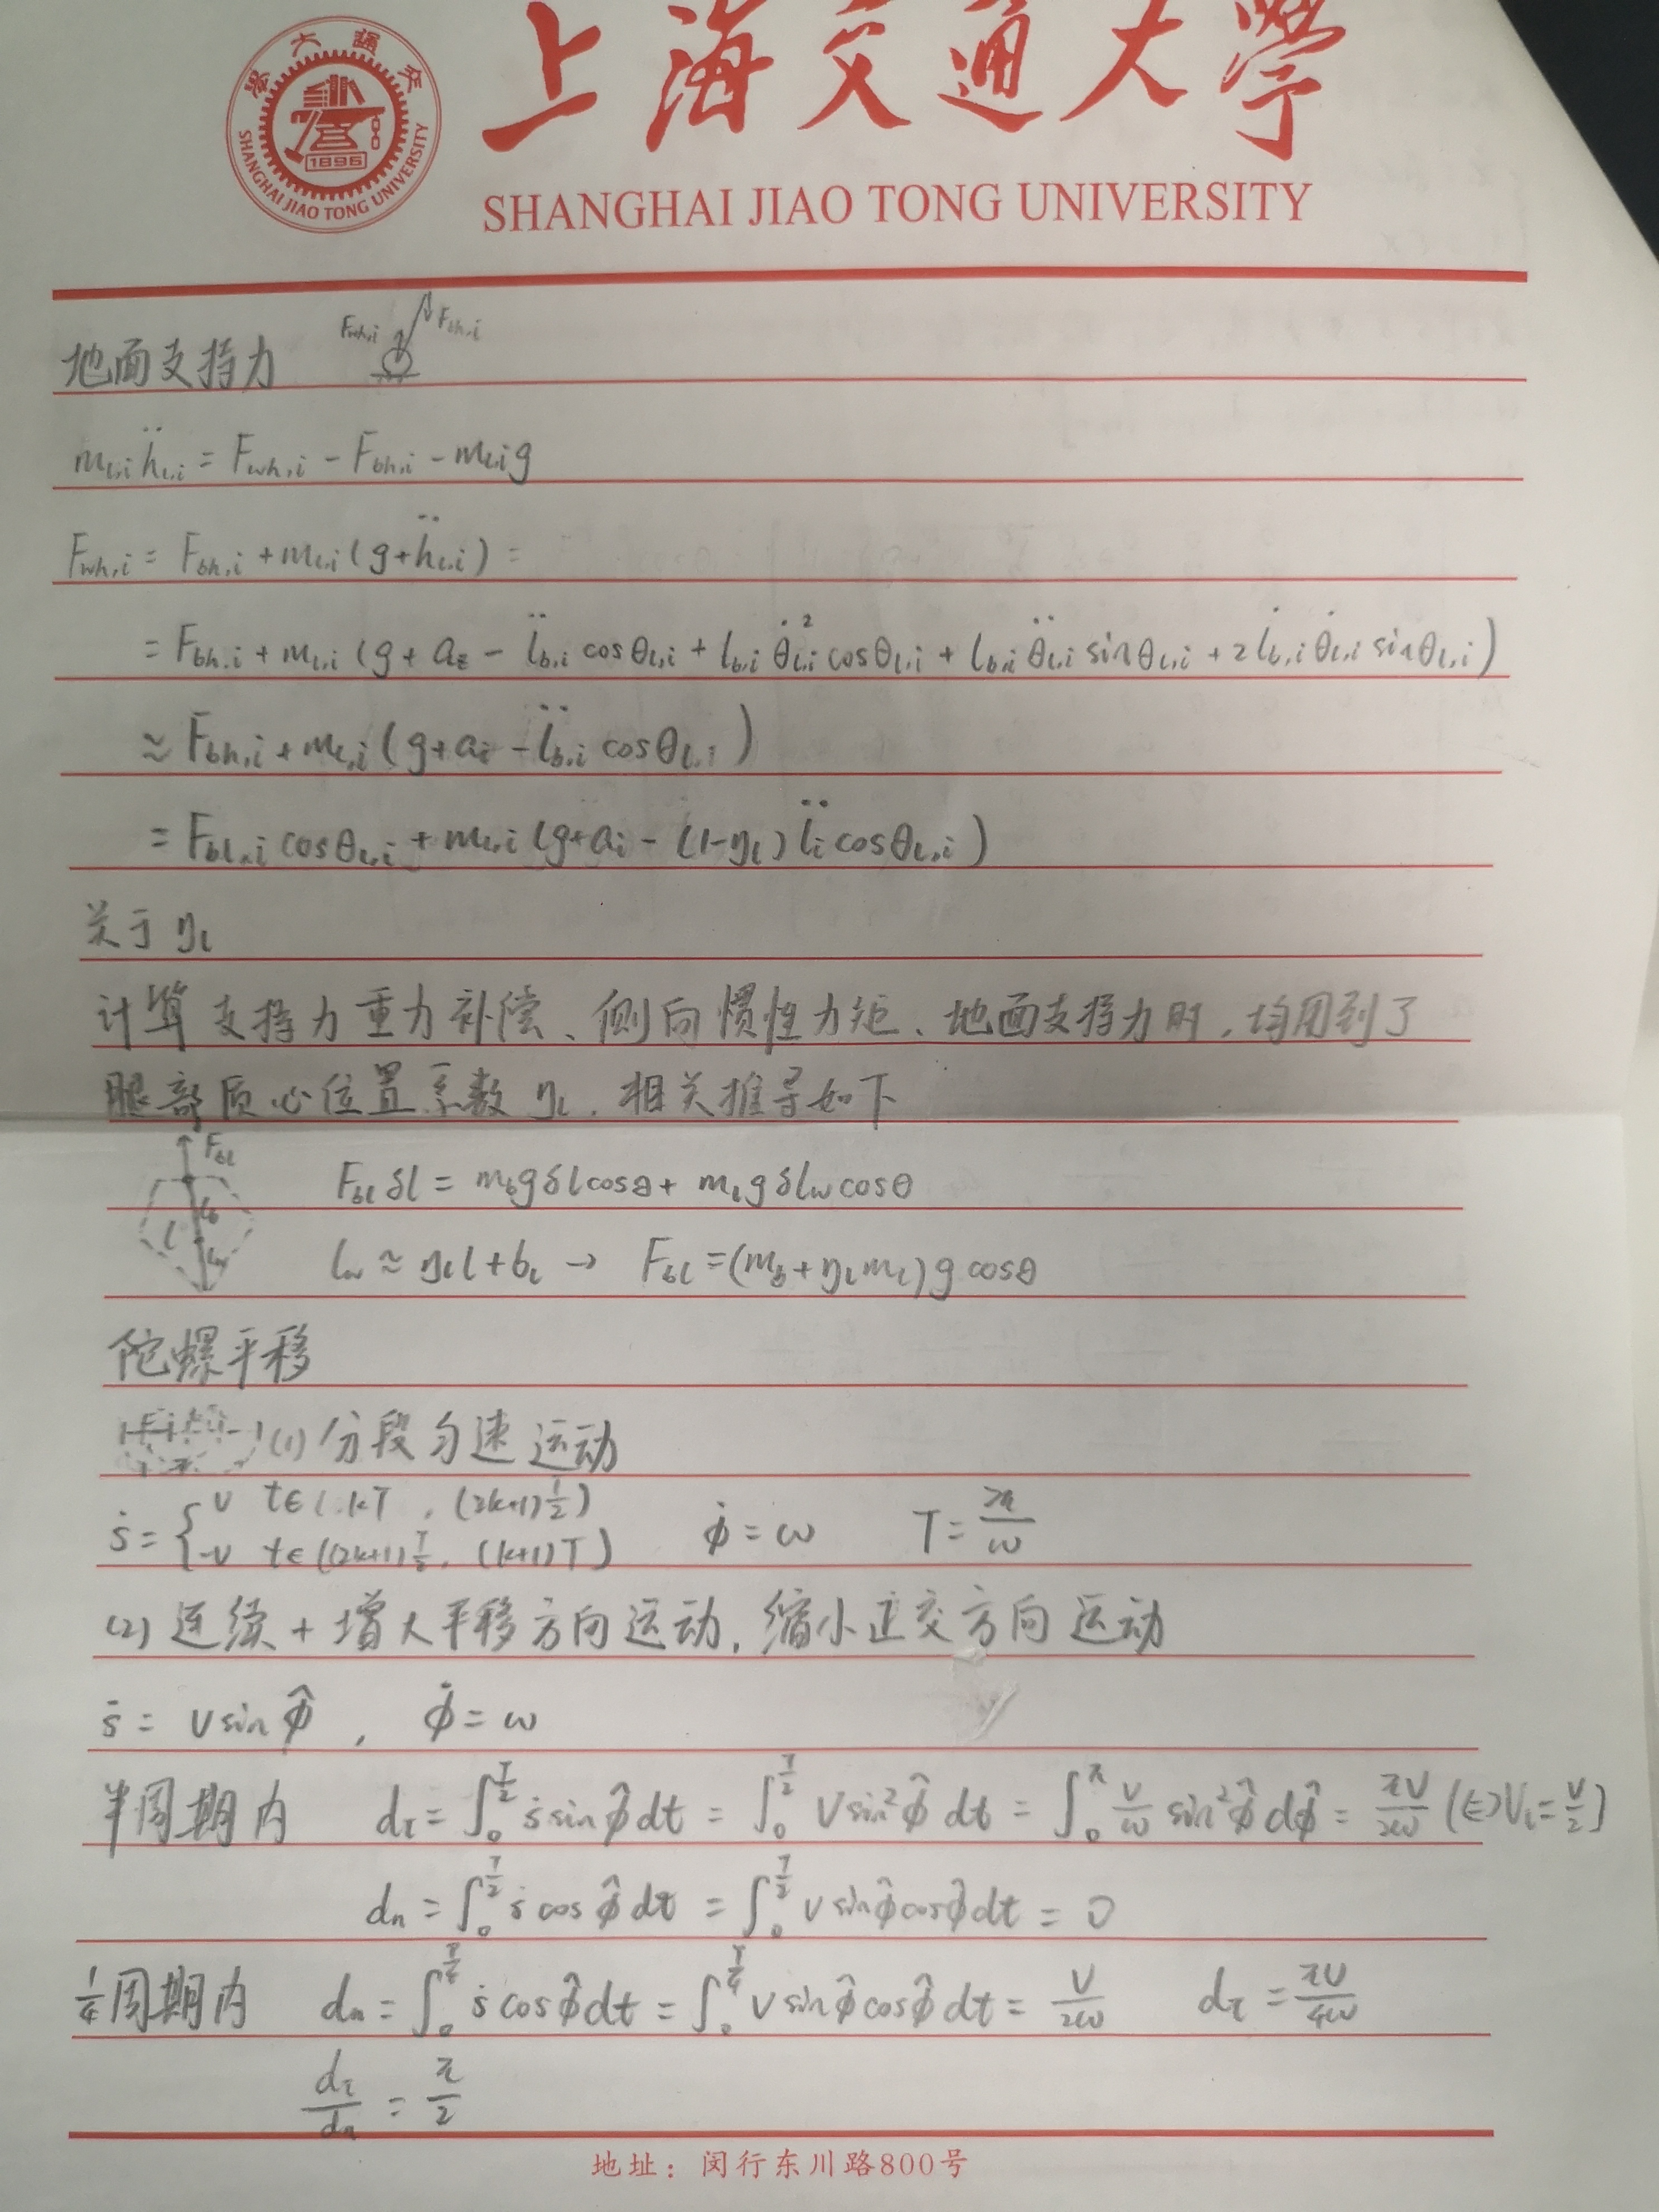 上海交通大學
SHANGHAI JIAO TONG UNIVERSITY
1896
SHANGHAI JIAO TONG UNIVERSITY
地面支持力 F_{wh,i} F_{bh,i}
m_{l,i} ḧ_{l,i} = F_{wh,i} - F_{bh,i} - m_{l,i} g
F_{wh,i} = F_{bh,i} + m_{l,i} (g + ḧ_{l,i}) =
= F_{bh,i} + m_{l,i} (g + a_z - l̈_{b,i} cosθ_{l,i} + l_{b,i} θ̇²_{l,i} cosθ_{l,i} + l_{b,i} θ̈_{l,i} sinθ_{l,i} + 2 l̇_{b,i} θ̇_{l,i} sinθ_{l,i})
≈ F_{bh,i} + m_{l,i} (g + a_i - l̈_{b,i} cosθ_{l,i})
= F_{bl,i} cosθ_{l,i} + m_{l,i} (g + a_i - (1-η_l) l̈_i cosθ_{l,i})
关于 η_l
计算支持力重力补偿、侧向惯性力矩、地面支持力时,均用到了
腿部质心位置系数 η_l. 相关推导如下
F_{bl} l l_b l_w
F_{bl} δl = m_b g δl cosθ + m_l g δl_w cosθ
l_w ≈ η_l l + b_l → F_{bl} = (m_b + η_l m_l) g cosθ
陀螺平移
(1) 分段匀速运动
ṡ = { v t∈(kT, (2k+1)T/2) -v t∈((2k+1)T/2, (k+1)T) φ̇ = ω T = 2π/ω
(2) 连续 + 增大平移方向运动, 缩小正交方向运动
ṡ = v sin φ̂, φ̇ = ω
半周期内 d_τ = ∫_0^{T/2} ṡ sin φ̂ dt = ∫_0^{T/2} v sin² φ̂ dt = ∫_0^π v/ω sin² φ̂ dφ̂ = πv/2ω (⇔ v_τ = v/2)
d_n = ∫_0^{T/2} ṡ cos φ̂ dt = ∫_0^{T/2} v sin φ̂ cos φ̂ dt = 0
1/4 周期内 d_n = ∫_0^{T/4} ṡ cos φ̂ dt = ∫_0^{T/4} v sin φ̂ cos φ̂ dt = v/2ω d_τ = πv/4ω
d_τ/d_n = π/2
地址: 闵行东川路800号